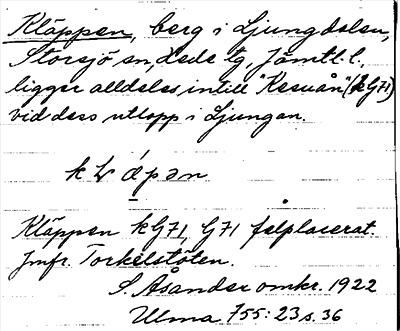 Kläppen, berg i Ljungdalen,
Storsjö sn, deds tg, Jämtl. l.,
ligger alldeles intill "Kesuån" (k G71)
vid dess utlopp i Ljungan.
Kläppen k G71, G71 felplacerat.
Jmfr. Torkelstöten.
S. Åsander omkr. 1922
Ulma 755:23 s. 36